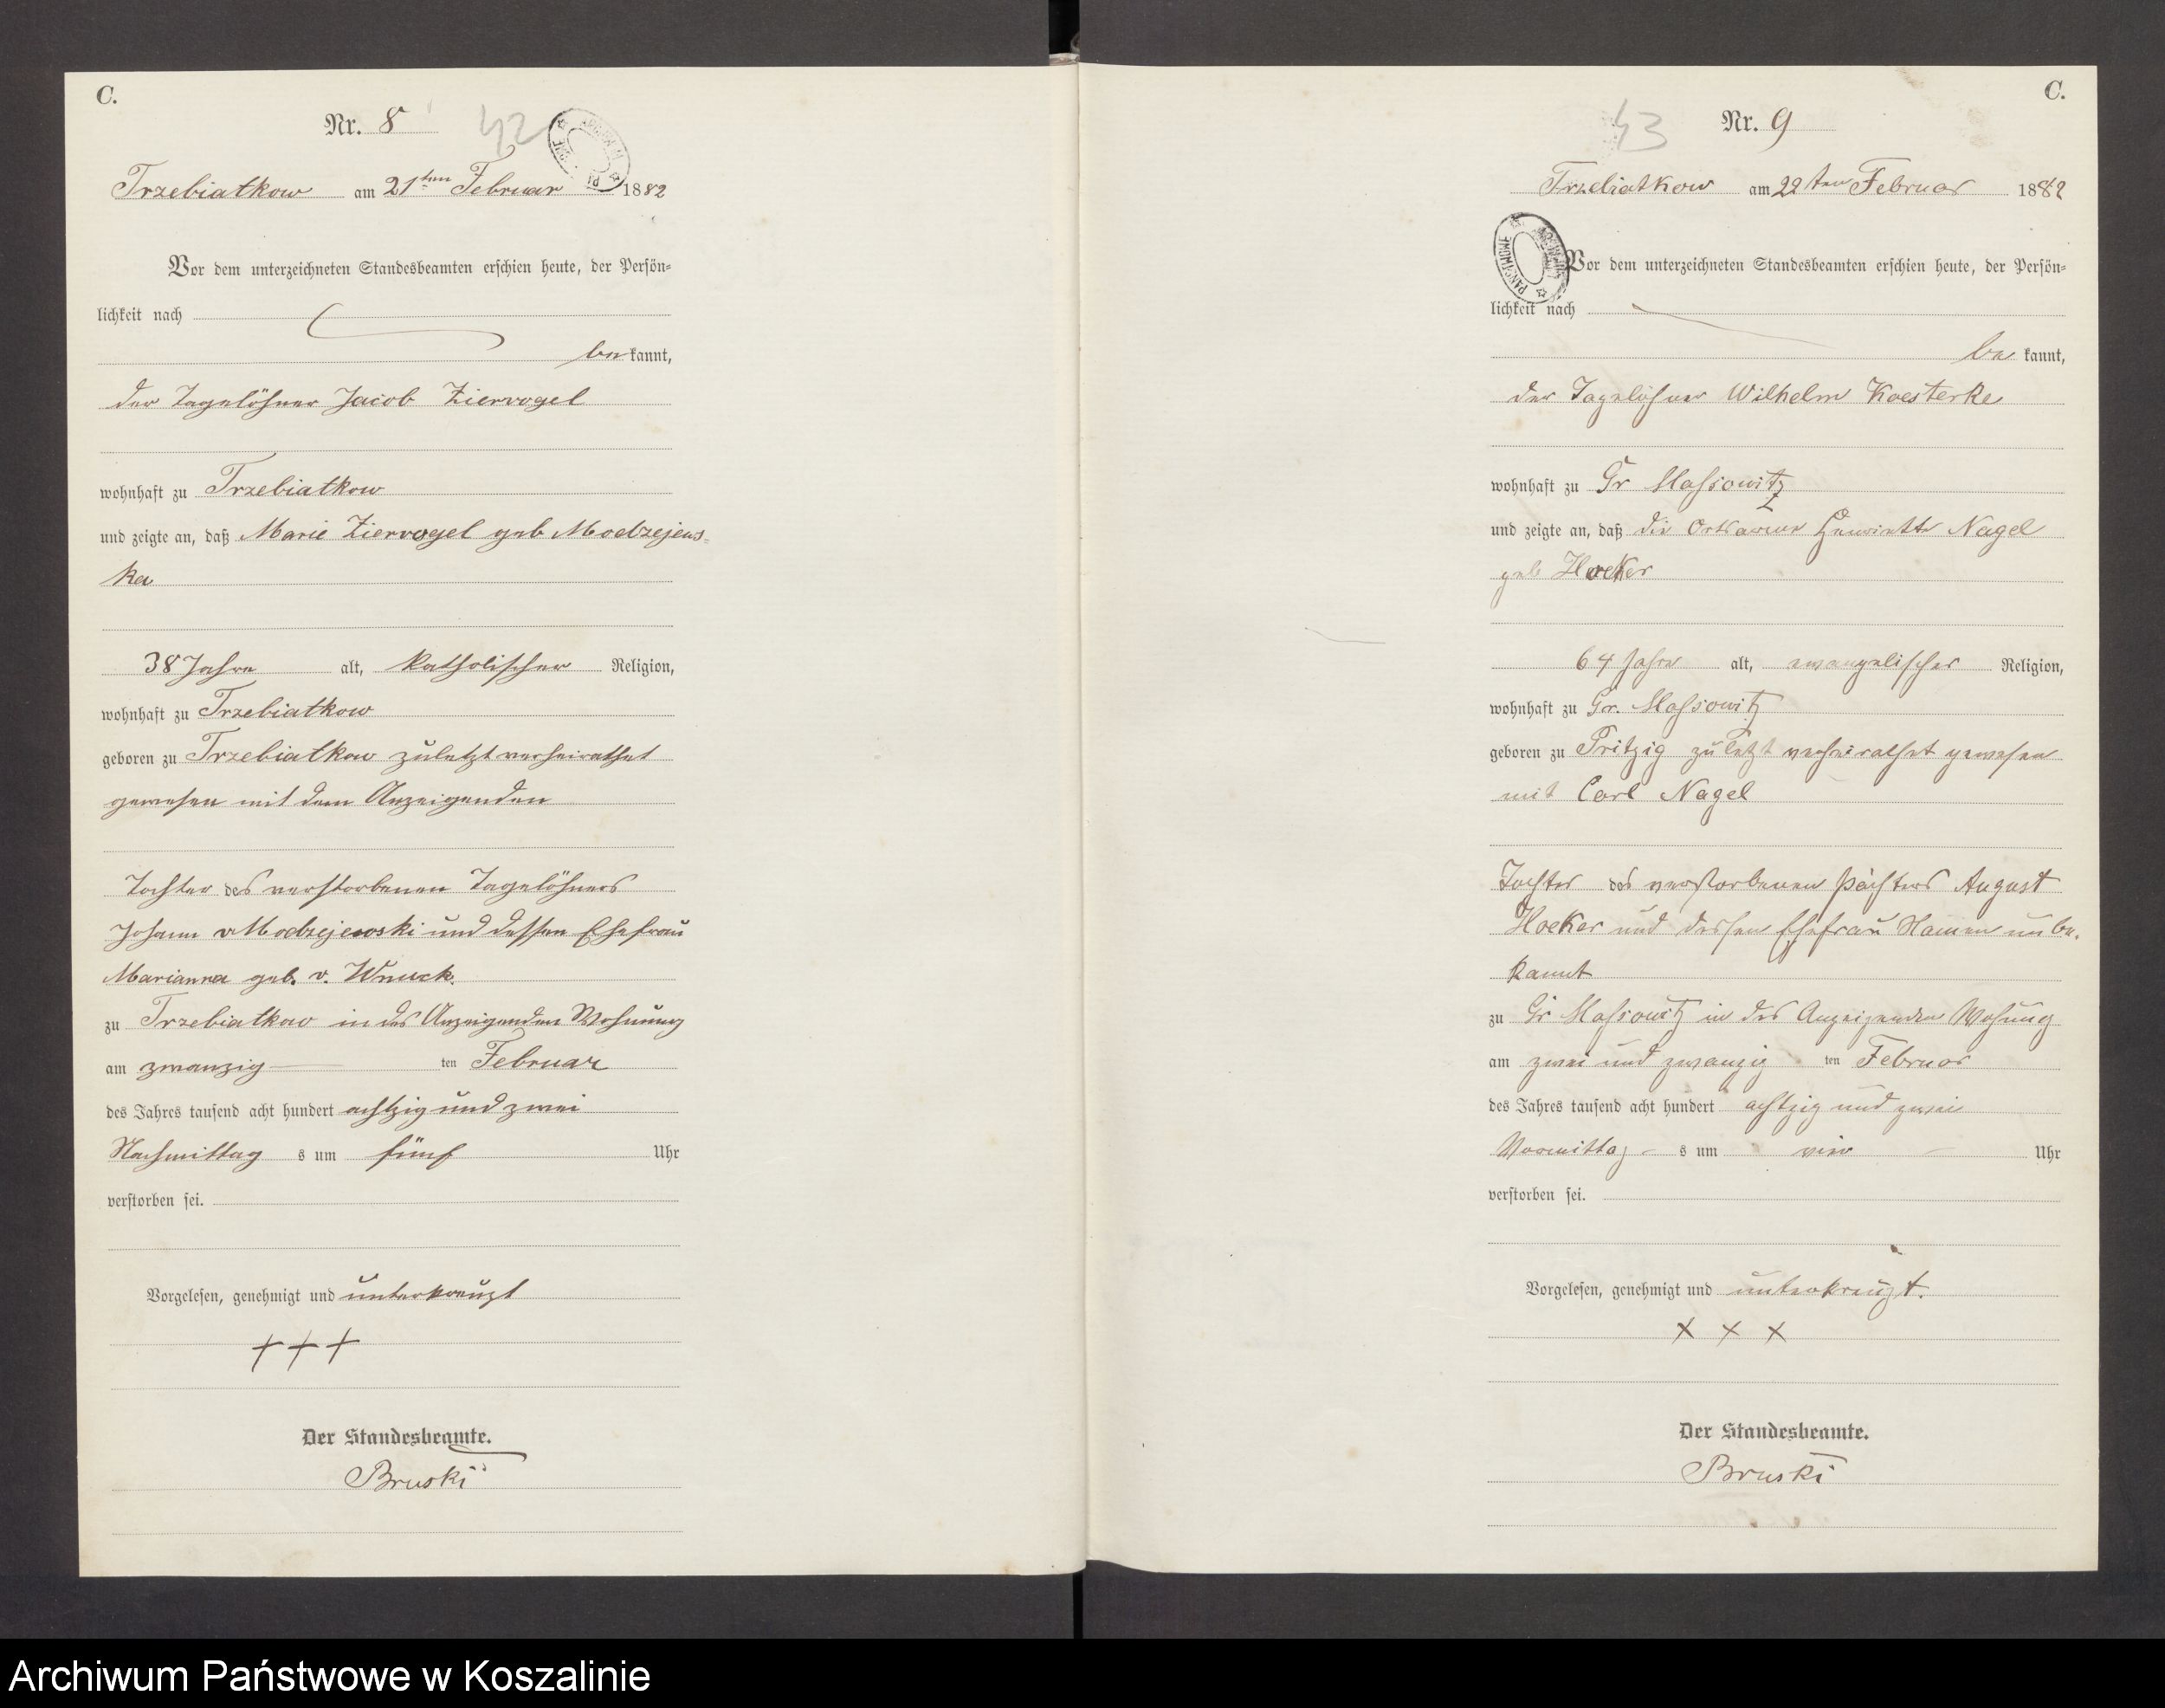 C.
Nr. 8
42
Trzebiatkow am 21ten Februar 1882
Vor dem unterzeichneten Standesbeamten erschien heute, der Persön=
lichkeit nach
be kannt,
der Tagelöhner Jacob Ziervogel
wohnhaft zu Trzebiatkow
und zeigte an, daß Marie Ziervogel geb Modzejews=
ka
38 Jahre alt, katholischer Religion,
wohnhaft zu Trzebiatkow
geboren zu Trzebiatkow zuletzt verheirathet
gewesen mit dem Anzeigenden
Tochter des verstorbenen Tagelöhners
Johann v Modzejewski und dessen Ehefrau
Marianna geb. v. Wnuck.
zu Trzebiatkow in des Anzeigenden Wohnung
am zwanzig ten Februar
des Jahres tausend acht hundert achtzig und zwei
Nachmittag s um fünf Uhr
verstorben sei.
Vorgelesen, genehmigt und unterkreuzt
+ + +
Der Standesbeamte.
Bruski
C.
43
Nr. 9
Trzebiatkow am 22ten Februar 1882
Vor dem unterzeichneten Standesbeamten erschien heute, der Persön=
lichkeit nach
be kannt,
der Tagelöhner Wilhelm Koesterke
wohnhaft zu Gr Massowitz
und zeigte an, daß die Ortsarme Henriette Nagel
geb Hoeker
64 Jahre alt, evangelischer Religion,
wohnhaft zu Gr. Massowitz
geboren zu Pritzig zuletzt verheirathet gewesen
mit Carl Nagel
Tochter des verstorbenen Pächters August
Hoeker und dessen Ehefrau Namen unbe-
kannt
zu Gr Massowitz in des Anzeigenden Wohung
am zwei und zwanzig ten Februar
des Jahres tausend acht hundert achtzig und zwei
Vormittag s um vier Uhr
verstorben sei.
Vorgelesen, genehmigt und unterkreuzt.
x x x
Der Standesbeamte.
Bruski
Archiwum Państwowe w Koszalinie